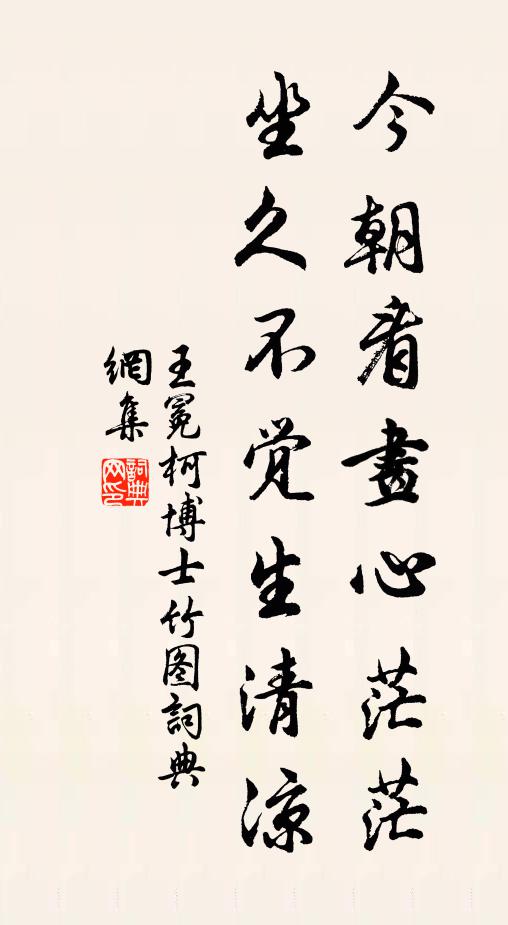 今朝看畫心茫茫
坐久不觉生清凉
王冕柯博士竹图詞典
網集
詞典
网印